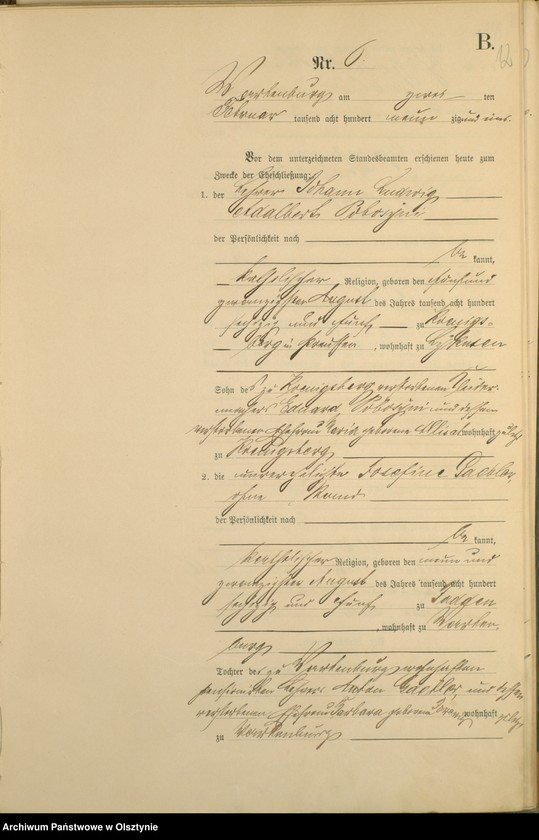 B.
Nr. 6.
Wartenburg am zwei ten
Februar tausend acht hundert neunzig und eins.
Vor dem unterzeichneten Standesbeamten erschienen heute zum
Zwecke der Eheschließung:
1. der Lehrer Johann Ludwig
Adalbert
der Persönlichkeit nach
be kannt,
katholischer Religion, geboren den fünf und
zwanzigsten August des Jahres tausend acht hundert
sechzig und fünf zu Koenigs-
berg in Preussen, wohnhaft zu
Sohn des zu Koenigsberg verstorbenen
Eduard und dessen
verstorbenen Ehefrau Maria geborene wohnhaft zuletzt
zu Koenigsberg
2. die unverehelichte Josefine Gaedler,
ohne Stand
der Persönlichkeit nach
be kannt,
katholischer Religion, geboren den neun und
zwanzigsten August des Jahres tausend acht hundert
sechzig und fünf zu
, wohnhaft zu Warten-
burg
Tochter des zu Wartenburg wohnhaften
pensionirten Lehrers Anton Gaedler und dessen
verstorbenen Ehefrau Barbara geborene wohnhaft zuletzt
zu Wartenburg
Archiwum Państwowe w Olsztynie